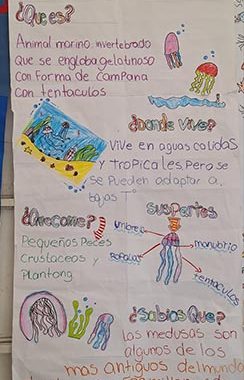 ¿Que es?
Animal marino invertebrado
Que se engloba gelatinoso
con Forma de campana
con tentaculos
¿Donde Vive?
Vive en aguas calidas
y tropicales, pero se
se pueden adaptar a
bajas T°
¿Que come?
Pequeños Peces
Crustaceos y
Plantong
sus partes
umbrela
manubrio
Ropalias
tentaculos
¿Sabias Que?
Las medusas son
algunos de los
mas antiguos del mundo